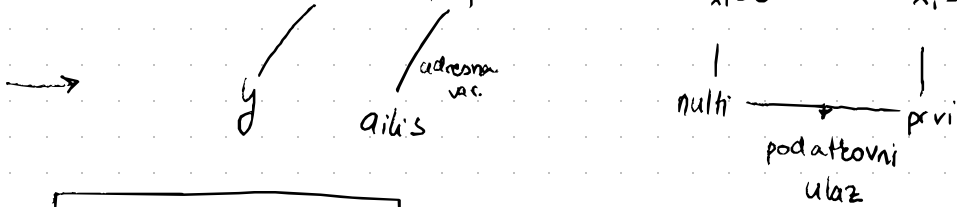 adresna
var.
y
ailis
nulti
prvi
podatkovni
ulaz